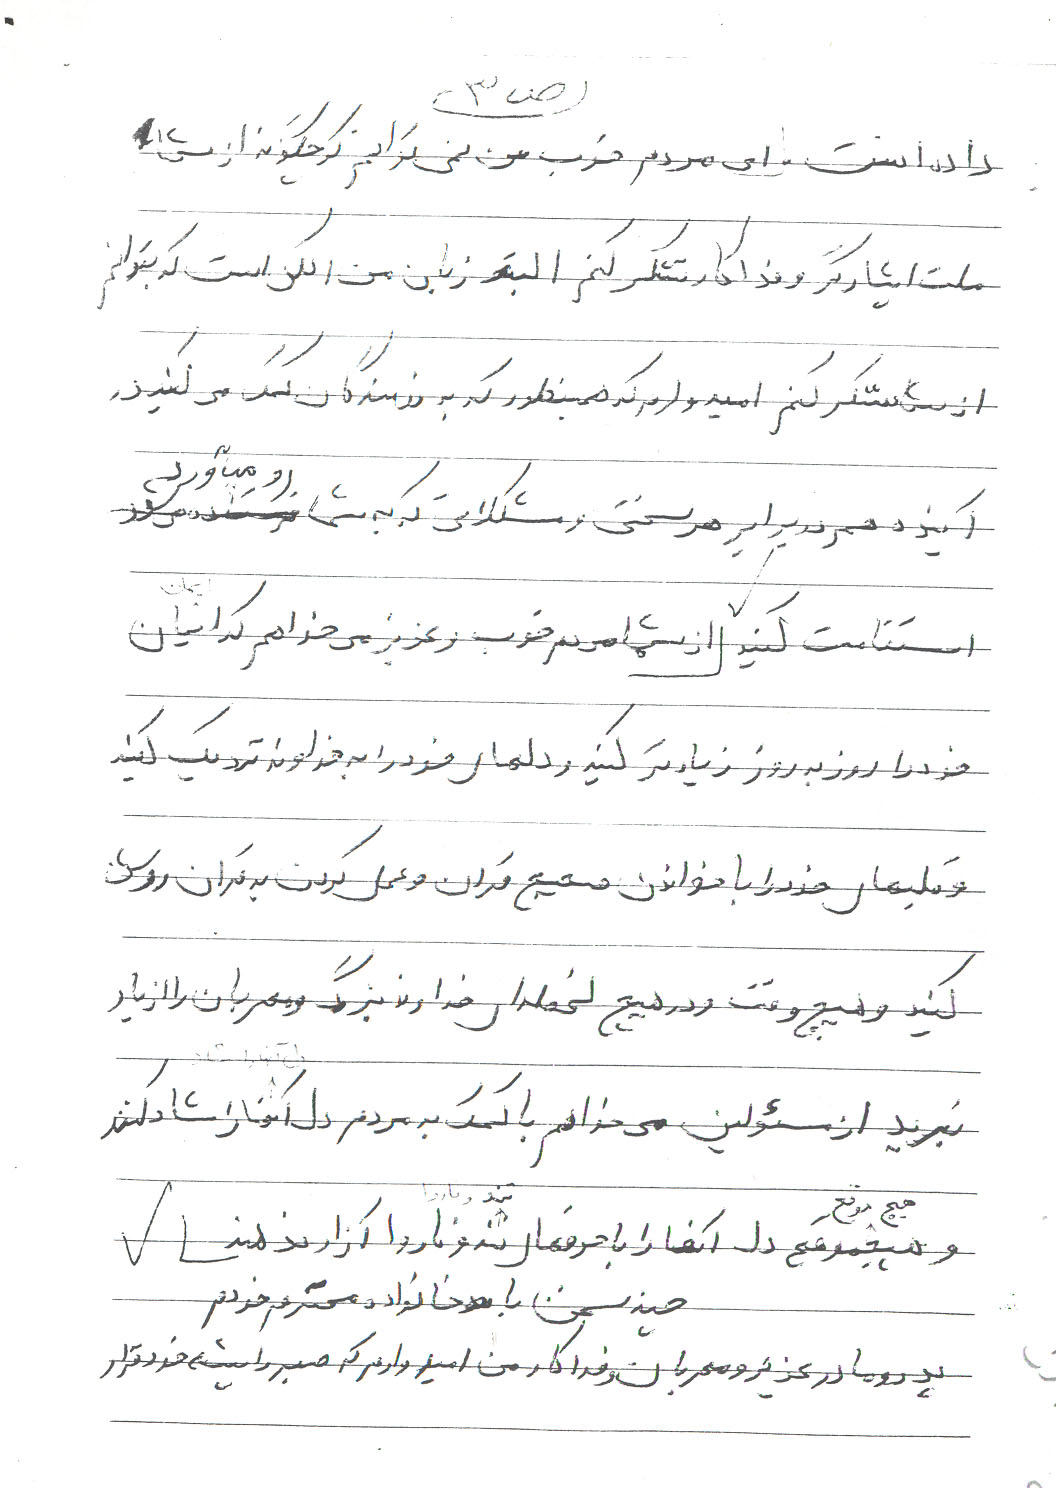 ص ۳
داده است. ای مردم خوب من نمی توانم که چگونه از شما
ملت ایثارگر و فداکار تشکر کنم البته زبان من الکن است که بتوانم
از شما تشکر کنم امیدوارم که همینطور که به رزمندگان کمک می کنید در
رو میآورد
آینده هم در برابر هر سختی و مشکلاتی که به شما
ایمان
استقامت کنید از شما مردم خوب و عزیز می خواهم که ایمان
خود را روز به روز زیادتر کنید و دلهای خود را به خداوند نزدیک کنید
و قلبهای خود را با خواندن صحیح قرآن و عمل کردن به قرآن روشن
کنید و هیچ وقت و در هیچ لحظه ای خداوند بزرگ و مهربان را از یاد
دل آنها را شاد
نبرید از مسئولین می خواهم با کمک به مردم دل آنها را شاد کنند
هیچ موقع تند و ناروا
و هیچموقع دل آنها را با حرفهای تند و ناروا آزار ندهند
چند سخن با خانواده محترم خودم
پدر و مادر عزیز و مهربان و فداکار من امیدوارم که صبر را پیشه خود قرار